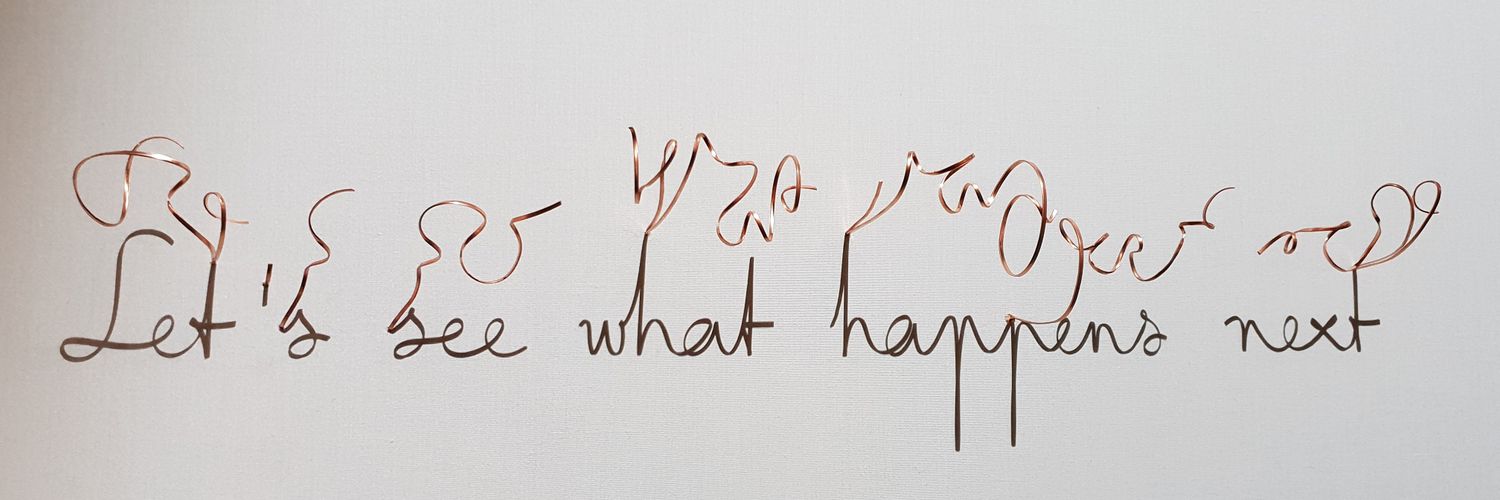 Let's see what happens next